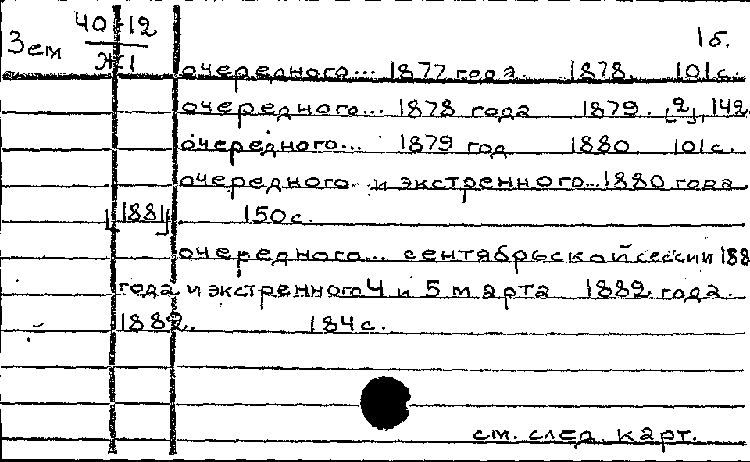 Зем 40-12 1б.
Ж1
очередного... 1877 года. 1878. 101с.
очередного... 1878 года 1879. [2], 142
очередного... 1879 год 1880 101с.
очередного и экстренного... 1880 года
[1881] 150с.
очередного... сентябрьской сессии 188
года и экстренного 4 и 5 марта 1882 года.
1882. 184с.
см. след. карт.